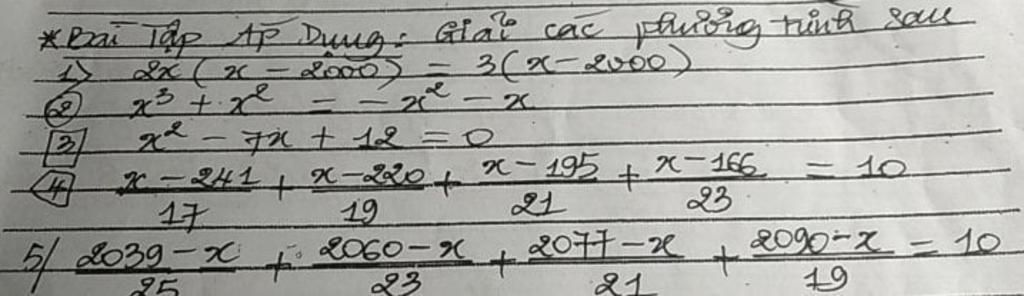 * Bài Tập Áp Dụng: Giải các phương trình sau
1) 2x(x - 2000) = 3(x - 2000)
2 x³ + x² = -x² - x
3 x² - 7x + 12 = 0
4 (x - 241)/17 + (x - 220)/19 + (x - 195)/21 + (x - 166)/23 = 10
5/ (2039 - x)/25 + (2060 - x)/23 + (2077 - x)/21 + (2090 - x)/19 = 10